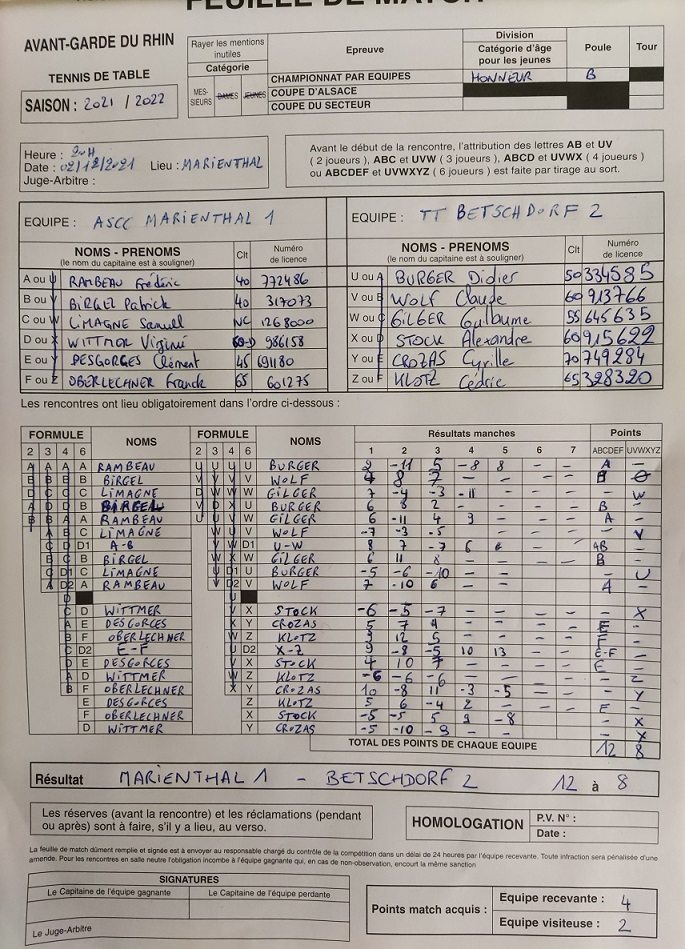 FEUILLE DE MATCH
AVANT-GARDE DU RHIN
TENNIS DE TABLE
SAISON : 2021 / 2022
Rayer les mentions inutiles
Catégorie
MES-SIEURS DAMES JEUNES
Epreuve
Division
Catégorie d'âge pour les jeunes
Poule
Tour
CHAMPIONNAT PAR EQUIPES HONNEUR B
COUPE D'ALSACE
COUPE DU SECTEUR
Heure : 20H
Date : 02/12/2021 Lieu : MARIENTHAL
Juge-Arbitre :
Avant le début de la rencontre, l'attribution des lettres AB et UV
( 2 joueurs ), ABC et UVW ( 3 joueurs ), ABCD et UVWX ( 4 joueurs )
ou ABCDEF et UVWXYZ ( 6 joueurs ) est faite par tirage au sort.
EQUIPE : ASCC MARIENTHAL 1
EQUIPE : TT BETSCHDORF 2
NOMS - PRENOMS Clt Numéro de licence
(le nom du capitaine est à souligner)
NOMS - PRENOMS Clt Numéro de licence
(le nom du capitaine est à souligner)
A ou U RAMBEAU Frédéric 40 772486
U ou A BURGER Didier 50 334585
B ou V BIRGEL Patrick 40 317073
V ou B WOLF Claude 60 913766
C ou W LIMAGNE Samuel NC 1268000
W ou C GILGER Guillaume 55 645635
D ou X WITTMER Virginie 986158
X ou D STOCK Alexandre 60 915622
E ou Y DESGORGES Clément 45 691180
Y ou E CROZAS Cyrille 70 749284
F ou Z OBERLECHNER Franck 65 601275
Z ou F KLOTZ Cédric 65 328320
Les rencontres ont lieu obligatoirement dans l'ordre ci-dessous :
FORMULE NOMS FORMULE NOMS Résultats manches Points
2 3 4 6 2 3 4 6 1 2 3 4 5 6 7 ABCDEF UVWXYZ
A RAMBEAU U BURGER -11 5 -8 8 - - A -
B BIRGEL V WOLF 8 7 - - - - B
C LIMAGNE W GILGER 7 -4 -3 -11 - - - - W
B BIRGEL U BURGER 6 8 2 - - - - B -
A RAMBEAU W GILGER 6 -11 4 9 - - - A -
C LIMAGNE V WOLF -7 -3 -5 - - - - - V
D1 A-B W D1 U-W 8 7 -7 6 6 - - AB -
B BIRGEL W GILGER 6 11 8 - - - - B -
C LIMAGNE U BURGER -5 -6 -10 - - - - - U
A RAMBEAU V WOLF 7 -10 6 - - - A -
D WITTMER X STOCK -6 -5 -7 - - - - - X
E DESGORGES Y CROZAS 5 7 9 - - - - E -
F OBERLECHNER Z KLOTZ 3 12 5 - - - - F -
D2 E-F D2 X-Z 9 -8 -5 10 13 - - E-F -
E DESGORGES X STOCK 4 10 7 - - - - E -
D WITTMER Z KLOTZ -6 -6 -6 - - - - - Z
F OBERLECHNER Y CROZAS 10 -8 11 -3 -5 - - - Y
E DESGORGES Z KLOTZ 5 6 -4 2 - - - F -
F OBERLECHNER X STOCK -5 -5 5 9 -8 - - - X
D WITTMER Y CROZAS -5 -10 -9 - - - - - X
TOTAL DES POINTS DE CHAQUE EQUIPE 12 8
Résultat MARIENTHAL 1 - BETSCHDORF 2 12 à 8
Les réserves (avant la rencontre) et les réclamations (pendant
ou après) sont à faire, s'il y a lieu, au verso.
HOMOLOGATION
P.V. N° :
Date :
La feuille de match dûment remplie et signée est à envoyer au responsable chargé du contrôle de la compétition dans un délai de 24 heures par l'équipe recevante. Toute infraction sera pénalisée d'une
amende. Pour les rencontres en salle neutre l'obligation incombe à l'équipe gagnante qui, en cas de non-observation, encourt la même sanction
SIGNATURES
Le Capitaine de l'équipe gagnante
Le Capitaine de l'équipe perdante
Le Juge-Arbitre
Points match acquis :
Equipe recevante : 4
Equipe visiteuse : 2